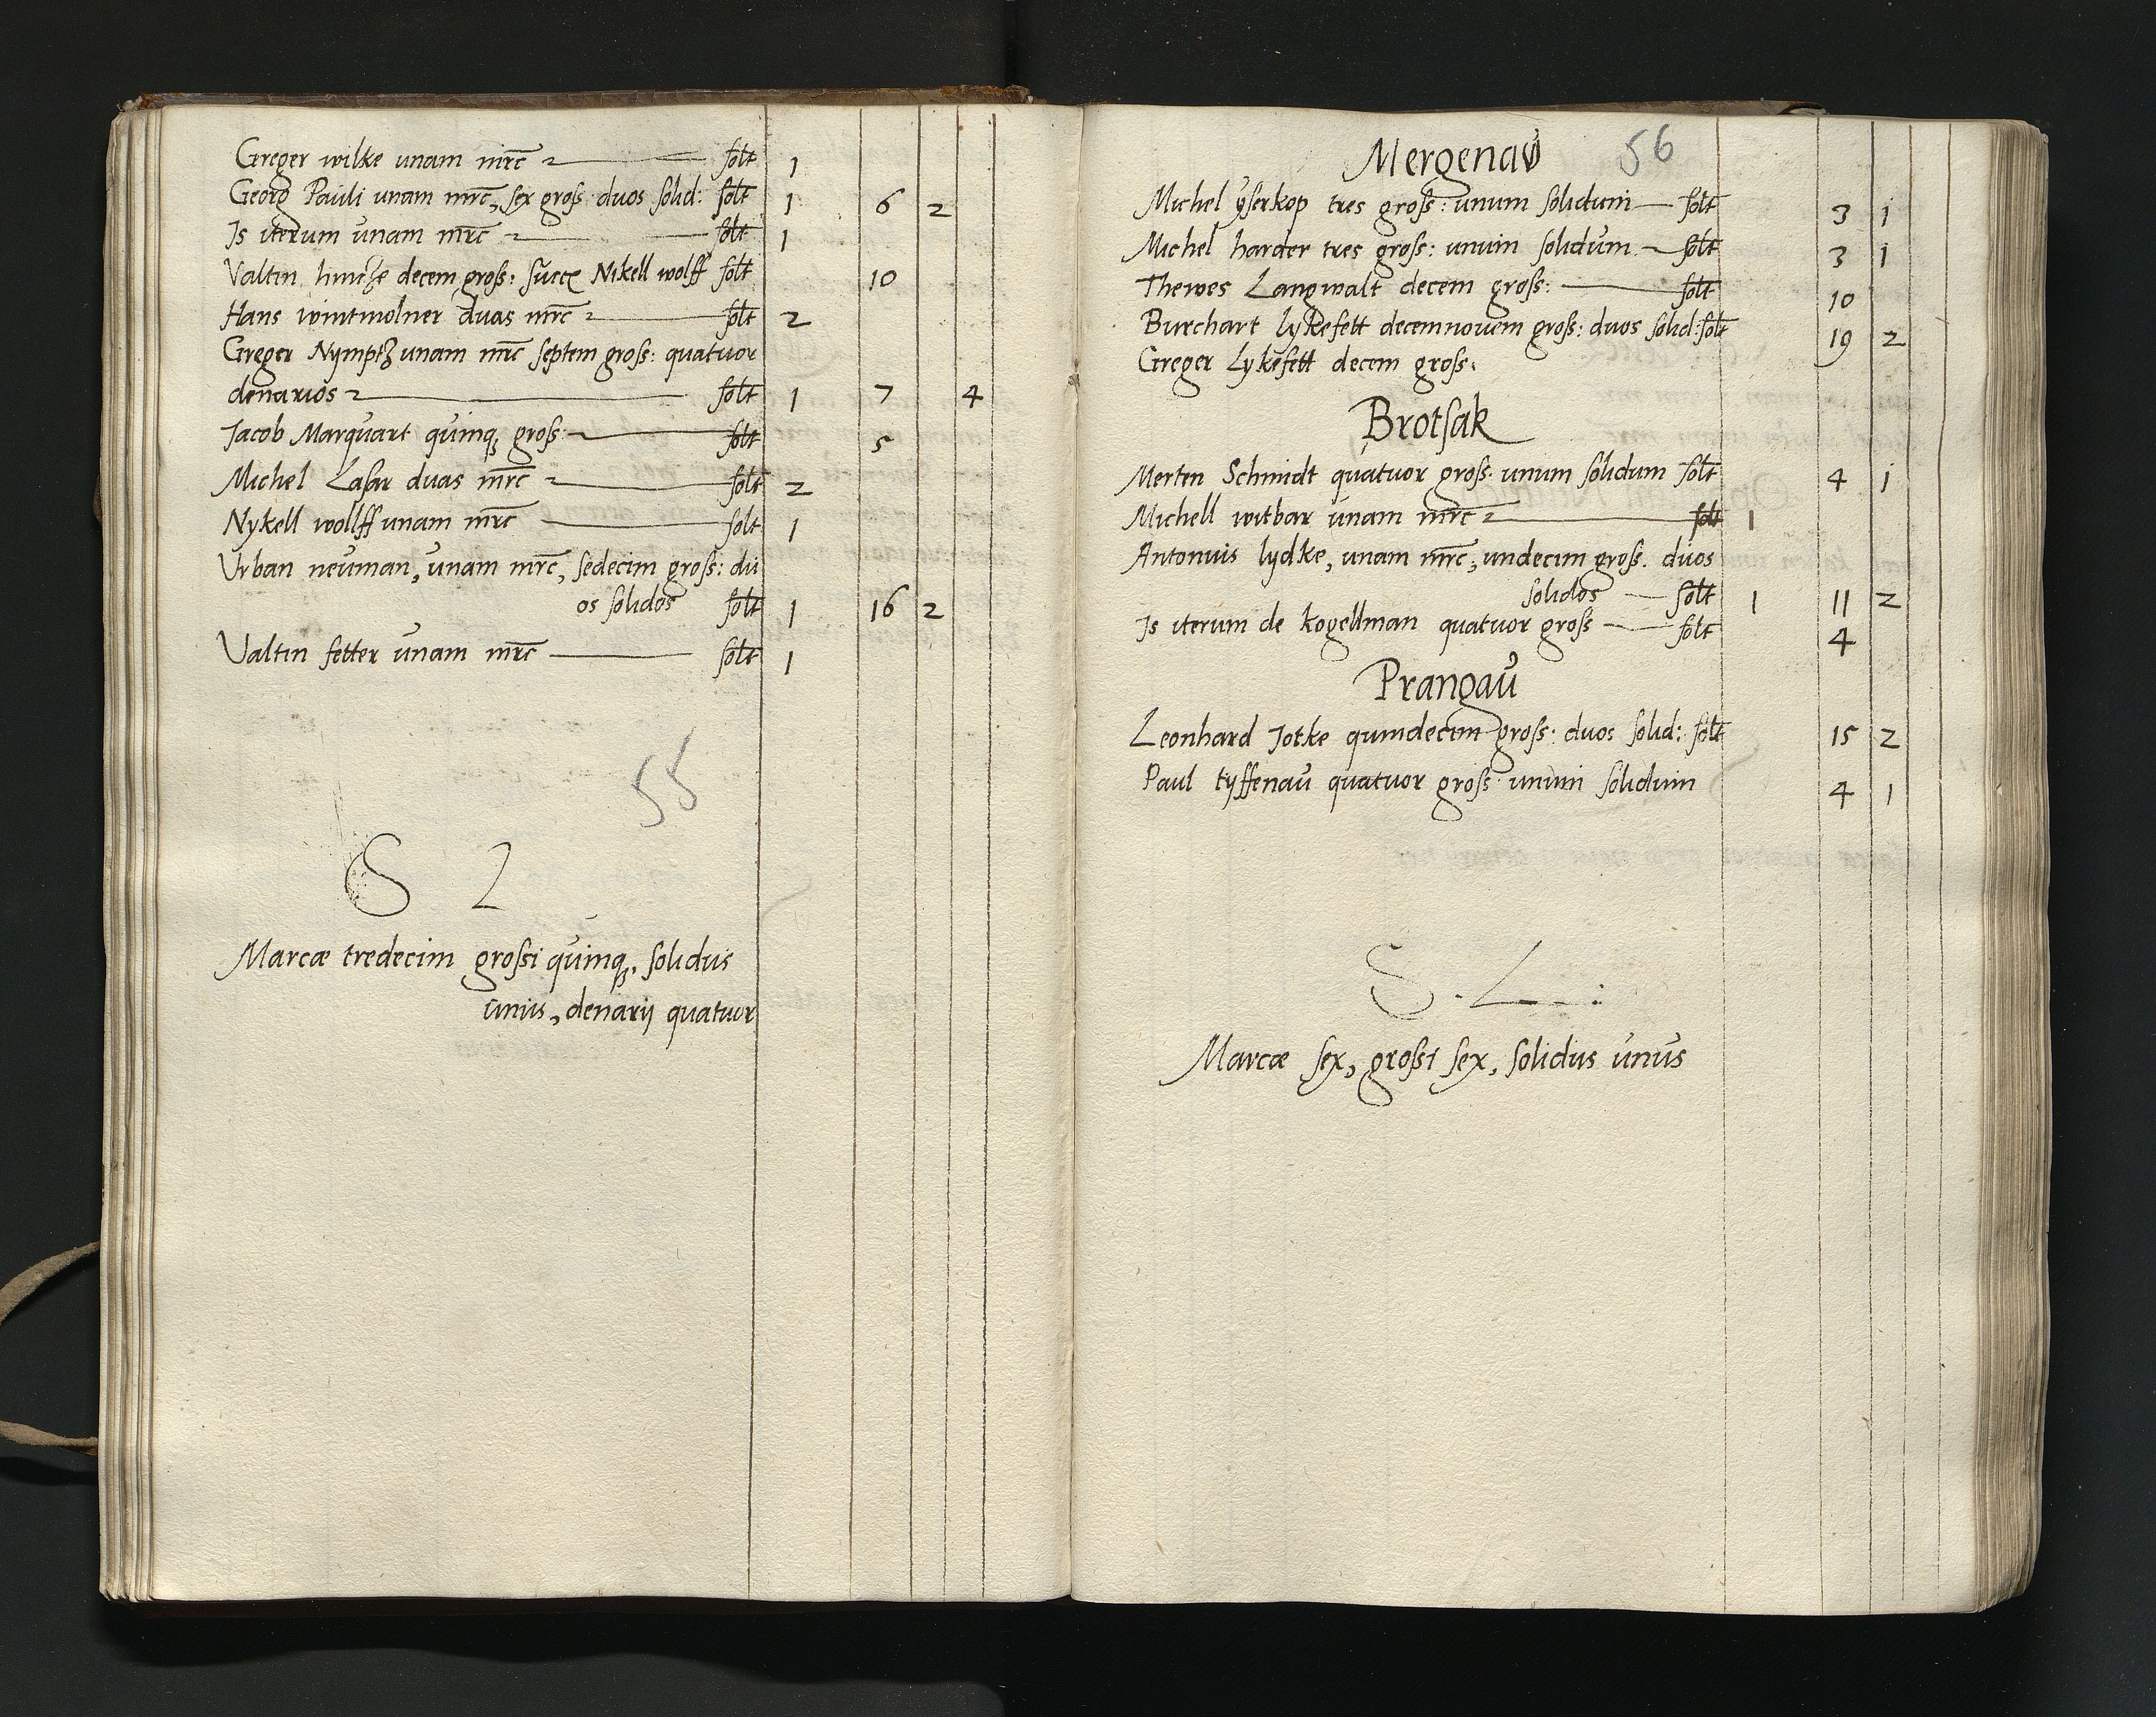 Greger wilke unam mrc̄ solt 1
Georg Pauli unam mrc̄, sex gross: duos solid: solt 1 6 2
Is iterum unam mrc̄ solt 1
Valtin decem gross: Nikell wolff solt 10
Hans wintmolner duas mrc̄ solt 2
Greger Nymptz unam mrc̄ septem gross: quatuor
denarios solt 1 7 4
Jacob Marquart quinq, gross: solt 5
Michel Lasar duas mrc̄ solt 2
Nykell wollff unam mrc̄ solt 1
Urban neuman, unam mrc̄, sedecim gross: du
os solidos solt 1 16 2
Valtin fetter unam mrc̄ solt 1
55
S L
Marcæ tredecim grossi quinq, solidus
unus, denarij quatuor
Mergenau 56
Michel ÿserkop tres gross: unum solidum solt 3 1
Michel harder tres gross: unum solidum solt 3 1
Thewes Langwalt decem gross: solt 10
Burchart lykefett decemnovem gross: duos solid: solt 19 2
Greger Lykefett decem gross:
Brotsak
Merten Schmidt quatuor gross: unum solidum solt 4 1
Michell witbar unam mrc̄ solt 1
Antonius lydke, unam mrc̄, undecim gross. duos
solidos solt 1 11 2
Is iterum de kogellman quatuor gross solt 4
Prangau
Leonhard Jotke quindecim gross: duos solid: solt 15 2
Paul tyffenau quatuor gross: unum solidum 4 1
S. L:
Marcæ sex, grossi sex, solidus unus